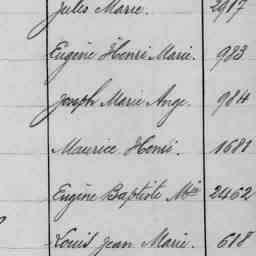 Jules Marie. 2917
Eugène Henri Marie. 983
Joseph Marie Ange. 984
Maurice Henri. 1681
Eugène Baptiste Mie 2462
Louis Jean Marie. 618